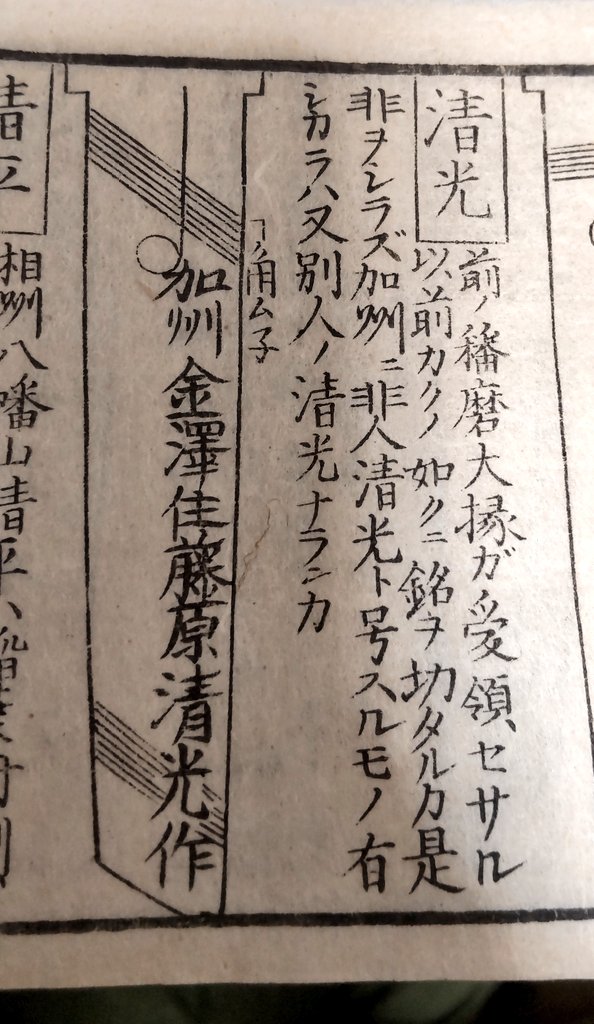 清光
前ノ播磨大掾ガ受領セサル
以前カクノ如クニ銘ヲ切タルカ是
非ヲシラズ加州ニ非人清光ト号スルモノ有
シカラハ又別人ノ清光ナランカ
角ム子
加州金澤住藤原清光作
清平
相州八幡山清平ハ